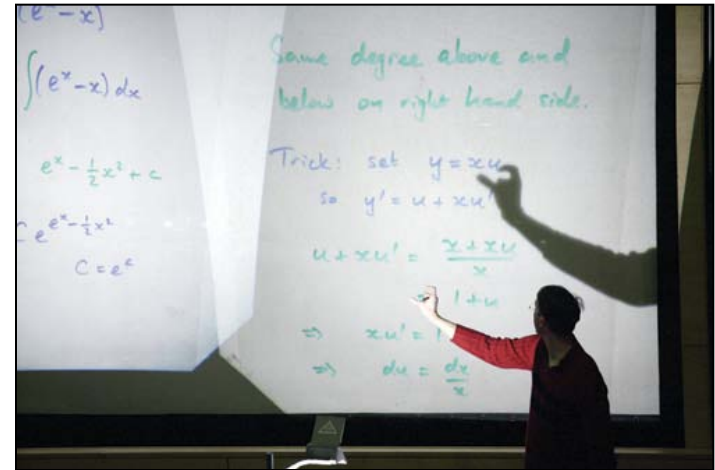 (eˣ - x)
∫(eˣ - x) dx
eˣ - ½x² + c
C e^(eˣ - ½x²)
C = eᶜ
Same degree above and
below on right hand side.
Trick: set y = xu
so y' = u + xu'
u + xu' = (x + xu)/x
= 1 + u
⇒ xu' = 1
⇒ du = dx/x